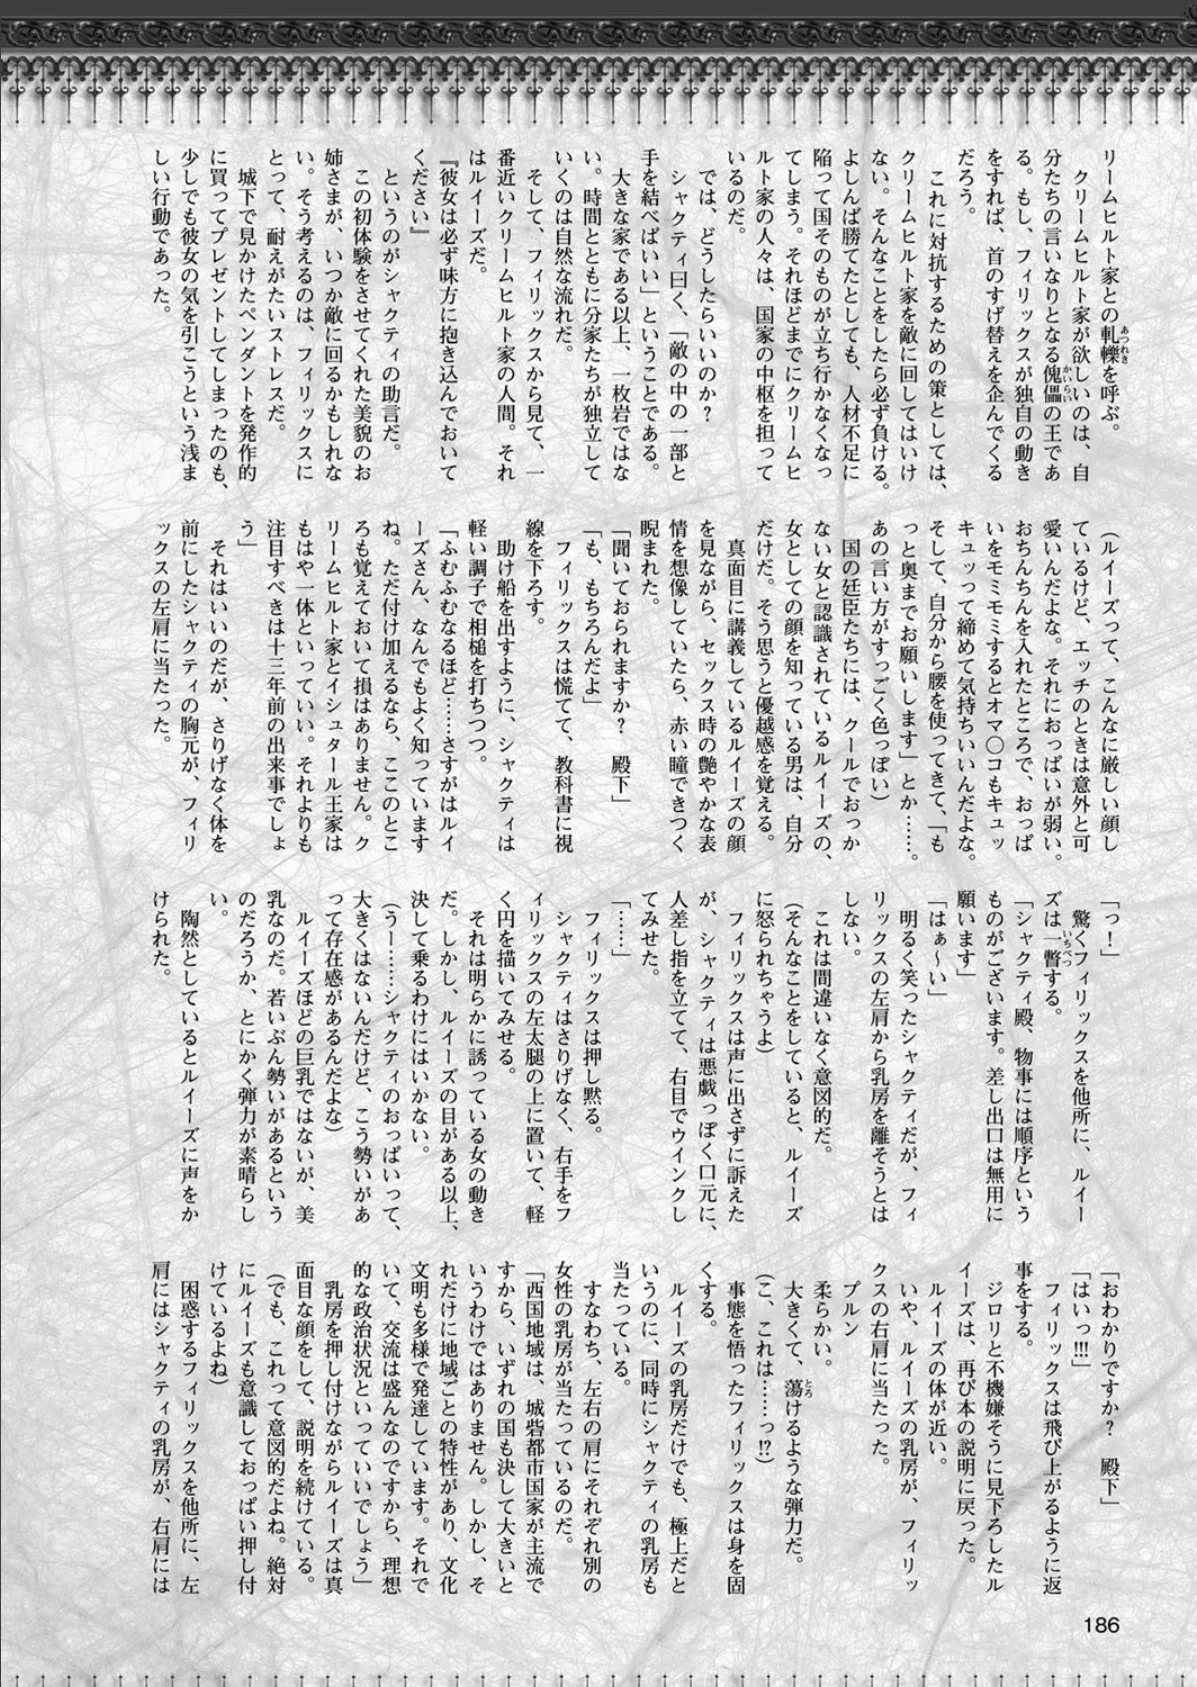 リームヒルト家との軋轢を呼ぶ。
クリームヒルト家が欲しいのは、自
分たちの言いなりとなる傀儡の王であ
る。もし、フィリックスが独自の動き
をすれば、首のすげ替えを企んでくる
だろう。
これに対抗するための策としては、
クリームヒルト家を敵に回してはいけ
ない。そんなことをしたら必ず負ける。
よしんば勝てたとしても、人材不足に
陥って国そのものが立ち行かなくなっ
てしまう。それほどまでにクリームヒ
ルト家の人々は、国家の中枢を担って
いるのだ。
では、どうしたらいいのか?
シャクティ曰く、「敵の中の一部と
手を結べばいい」ということである。
大きな家である以上、一枚岩ではな
い。時間とともに分家たちが独立して
いくのは自然な流れだ。
そして、フィリックスから見て、一
番近いクリームヒルト家の人間。それ
はルイーズだ。
『彼女は必ず味方に抱き込んでおいて
ください』
というのがシャクティの助言だ。
この初体験をさせてくれた美貌のお
姉さまが、いつか敵に回るかもしれな
い。そう考えるのは、フィリックスに
とって、耐えがたいストレスだ。
城下で見かけたペンダントを発作的
に買ってプレゼントしてしまったのも、
少しでも彼女の気を引こうという浅ま
しい行動であった。
(ルイーズって、こんなに厳しい顔し
ているけど、エッチのときは意外と可
愛いんだよな。それにおっぱいが弱い。
おちんちんを入れたところで、おっぱ
いをモミモミするとオマ〇コもキュッ
キュッって締めて気持ちいいんだよな。
そして、自分から腰を使ってきて、「も
っと奥までお願いします」とか……。
あの言い方がすっごく色っぽい)
国の廷臣たちには、クールでおっか
ない女と認識されているルイーズの、
女としての顔を知っている男は、自分
だけだ。そう思うと優越感を覚える。
真面目に講義しているルイーズの顔
を見ながら、セックス時の艶やかな表
情を想像していたら、赤い瞳できつく
睨まれた。
「聞いておられますか? 殿下」
「も、もちろんだよ」
フィリックスは慌てて、教科書に視
線を下ろす。
助け船を出すように、シャクティは
軽い調子で相槌を打ちつつ。
「ふむふむなるほど……さすがはルイ
ーズさん、なんでもよく知っています
ね。ただ付け加えるなら、ここのとこ
ろも覚えておいて損はありません。ク
リームヒルト家とイシュタール王家は
もはや一体といっていい。それよりも
注目すべきは十三年前の出来事でしょ
う」
それはいいのだが、さりげなく体を
前にしたシャクティの胸元が、フィリ
ックスの左肩に当たった。
「っ!」
驚くフィリックスを他所に、ルイー
ズは一瞥する。
「シャクティ殿、物事には順序という
ものがございます。差し出口は無用に
願います」
「はぁ～い」
明るく笑ったシャクティだが、フィ
リックスの左肩から乳房を離そうとは
しない。
これは間違いなく意図的だ。
(そんなことをしていると、ルイーズ
に怒られちゃうよ)
フィリックスは声に出さずに訴えた
が、シャクティは悪戯っぽく口元に、
人差し指を立てて、右目でウインクし
てみせた。
「……」
フィリックスは押し黙る。
シャクティはさりげなく、右手をフ
ィリックスの左太腿の上に置いて、軽
く円を描いてみせる。
それは明らかに誘っている女の動き
だ。しかし、ルイーズの目がある以上、
決して乗るわけにはいかない。
(うー……シャクティのおっぱいって、
大きくはないんだけど、こう勢いがあ
って存在感があるんだよな)
ルイーズほどの巨乳ではないが、美
乳なのだ。若いぶん勢いがあるという
のだろうか、とにかく弾力が素晴らし
い。
陶然としているとルイーズに声をか
けられた。
「おわかりですか? 殿下」
「はいっ!!!」
フィリックスは飛び上がるように返
事をする。
ジロリと不機嫌そうに見下ろしたル
イーズは、再び本の説明に戻った。
ルイーズの体が近い。
いや、ルイーズの乳房が、フィリッ
クスの右肩に当たった。
プルン
柔らかい。
大きくて、蕩けるような弾力だ。
(こ、これは……っ!?)
事態を悟ったフィリックスは身を固
くする。
ルイーズの乳房だけでも、極上だと
いうのに、同時にシャクティの乳房も
当たっている。
すなわち、左右の肩にそれぞれ別の
女性の乳房が当たっているのだ。
「西国地域は、城砦都市国家が主流で
すから、いずれの国も決して大きいと
いうわけではありません。しかし、そ
れだけに地域ごとの特性があり、文化
文明も多様で発達しています。それで
いて、交流は盛んなのですから、理想
的な政治状況といっていいでしょう」
乳房を押し付けながらルイーズは真
面目な顔をして、説明を続けている。
(でも、これって意図的だよね。絶対
にルイーズも意識しておっぱい押し付
けているよね)
困惑するフィリックスを他所に、左
肩にはシャクティの乳房が、右肩には
186